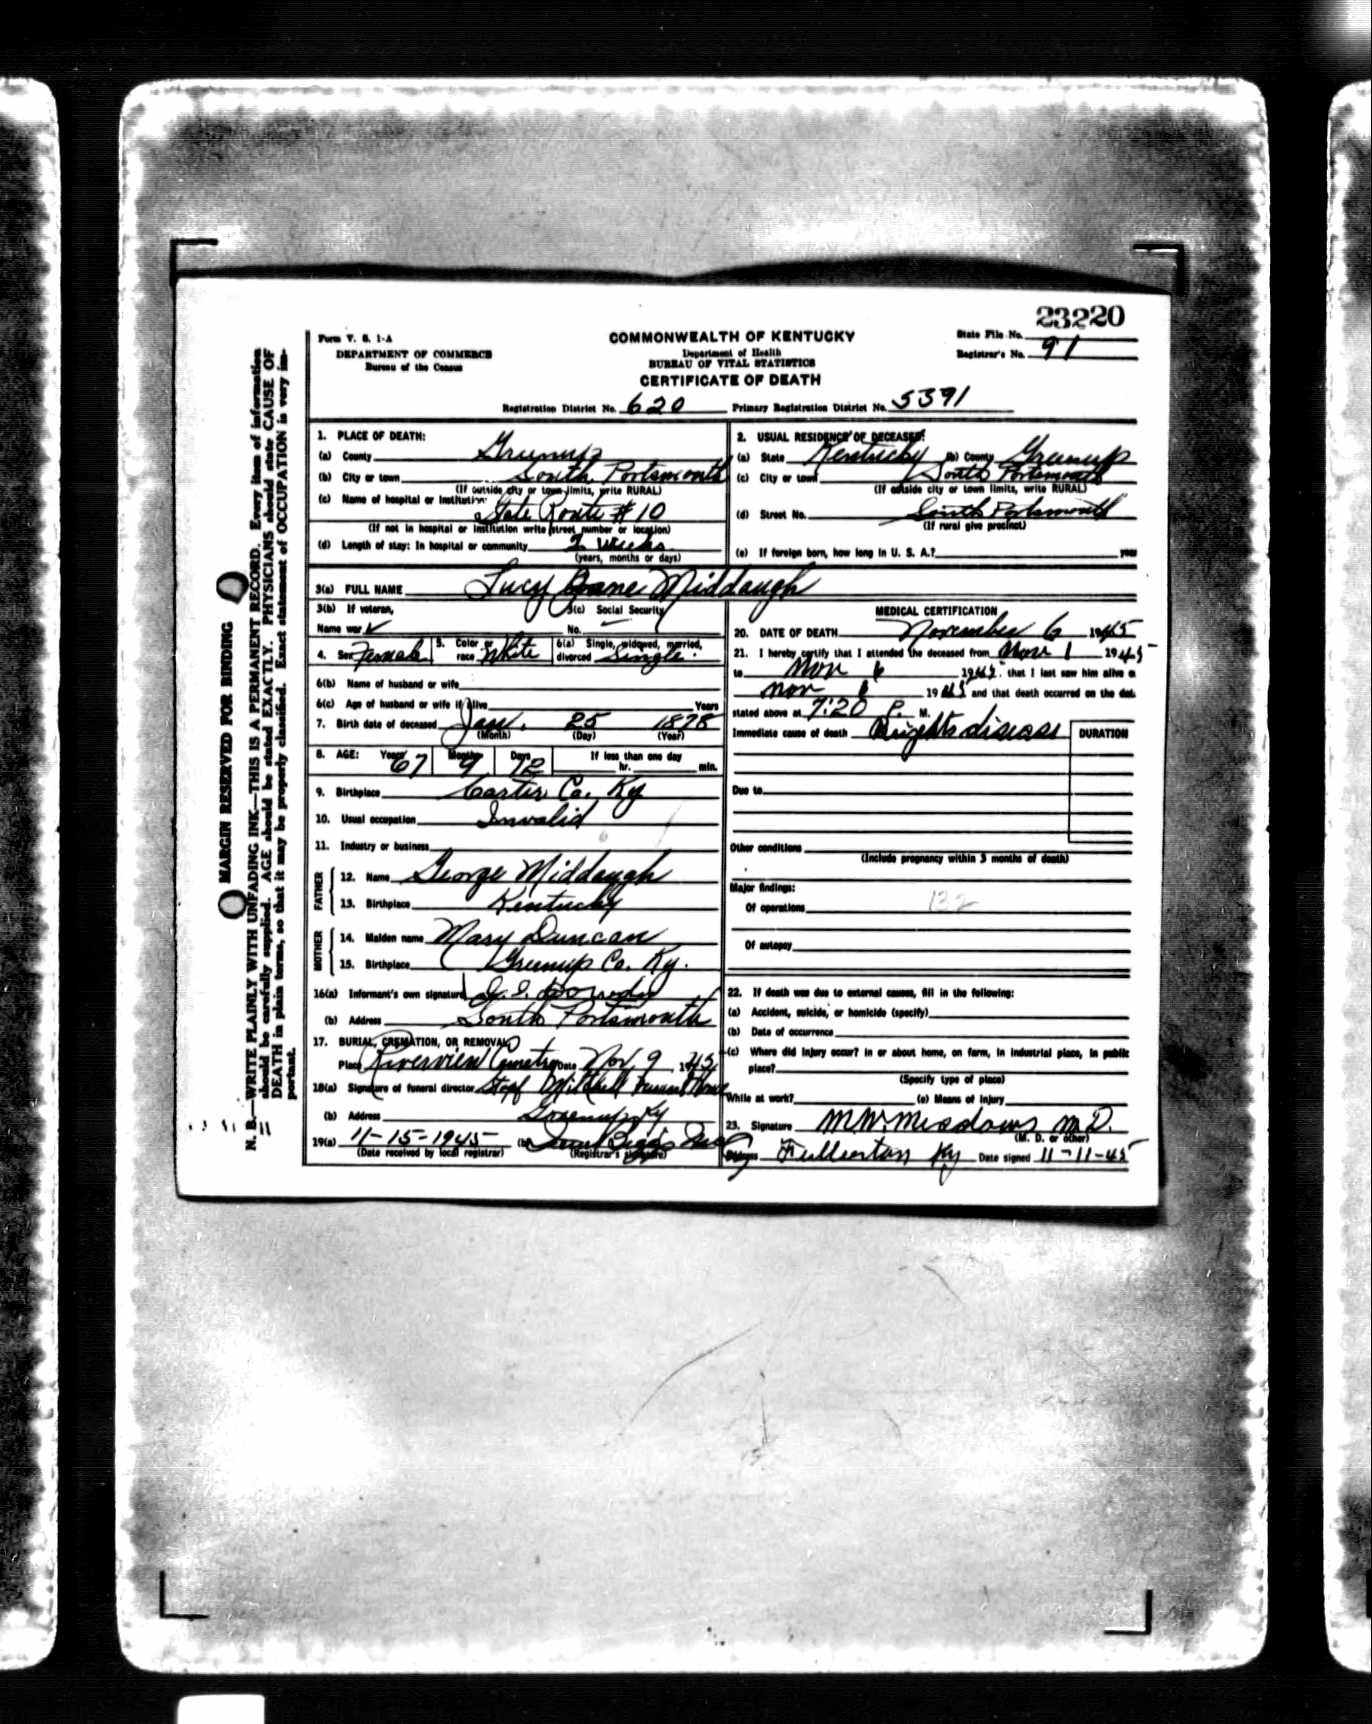 23220
Form V. S. 1-A
COMMONWEALTH OF KENTUCKY
State File No.
DEPARTMENT OF COMMERCE
Department of Health
Registrar's No. 91
Bureau of the Census
BUREAU OF VITAL STATISTICS
CERTIFICATE OF DEATH
Registration District No. 620 Primary Registration District No. 5391
MARGIN RESERVED FOR BINDING
N. B.—WRITE PLAINLY WITH UNFADING INK—THIS IS A PERMANENT RECORD. Every item of information
should be carefully supplied. AGE should be stated EXACTLY. PHYSICIANS should state CAUSE OF
DEATH in plain terms, so that it may be properly classified. Exact statement of OCCUPATION is very im-
portant.
1. PLACE OF DEATH:
(a) County Greenup
(b) City or town South Portsmouth
(If outside city or town limits, write RURAL)
(c) Name of hospital or institution:
State Route # 10
(If not in hospital or institution write street number or location)
(d) Length of stay: In hospital or community 2 weeks
(years, months or days)
2. USUAL RESIDENCE OF DECEASED:
(a) State Kentucky (b) County Greenup
(c) City or town South Portsmouth
(If outside city or town limits, write RURAL)
(d) Street No. South Portsmouth
(If rural give precinct)
(e) If foreign born, how long in U. S. A.? years
3(a) FULL NAME Lucy Jane Middaugh
3(b) If veteran,
3(c) Social Security
Name war
No. —
4. Sex Female 5. Color or race White 6(a) Single, widowed, married, divorced Single.
6(b) Name of husband or wife
6(c) Age of husband or wife if alive Years
7. Birth date of deceased Jan. 25 1878
(Month) (Day) (Year)
8. AGE: Years 67 Months 9 Days 12 If less than one day
hr. min.
9. Birthplace Carter Co. Ky
10. Usual occupation Invalid
11. Industry or business
FATHER
12. Name George Middaugh
13. Birthplace Kentucky
MOTHER
14. Maiden name Mary Duncan
15. Birthplace Greenup Co. Ky.
16(a) Informant's own signature
(b) Address South Portsmouth
17. BURIAL, CREMATION, OR REMOVAL
Place Riverview Cemetery Date Nov 9, 1945
18(a) Signature of funeral director Funeral Home
(b) Address Greenup Ky
19(a) 11-15-1945 (b)
(Date received by local registrar) (Registrar's signature)
MEDICAL CERTIFICATION
20. DATE OF DEATH November 6 1945
21. I hereby certify that I attended the deceased from Nov 1 1945
to Nov 6 1945, that I last saw him alive o
nov 6 1945 and that death occurred on the dat.
stated above at 7:20 P. M.
Immediate cause of death Brights disease
DURATION
Due to
Other conditions
(Include pregnancy within 3 months of death)
Major findings:
Of operations 132
Of autopsy
22. If death was due to external causes, fill in the following:
(a) Accident, suicide, or homicide (specify)
(b) Date of occurrence
(c) Where did injury occur? in or about home, on farm, in industrial place, in public
place?
(Specify type of place)
While at work? (e) Means of injury
23. Signature M. W. Meadows M.D.
(M. D. or other)
Address Fullerton Ky Date signed 11-11-45